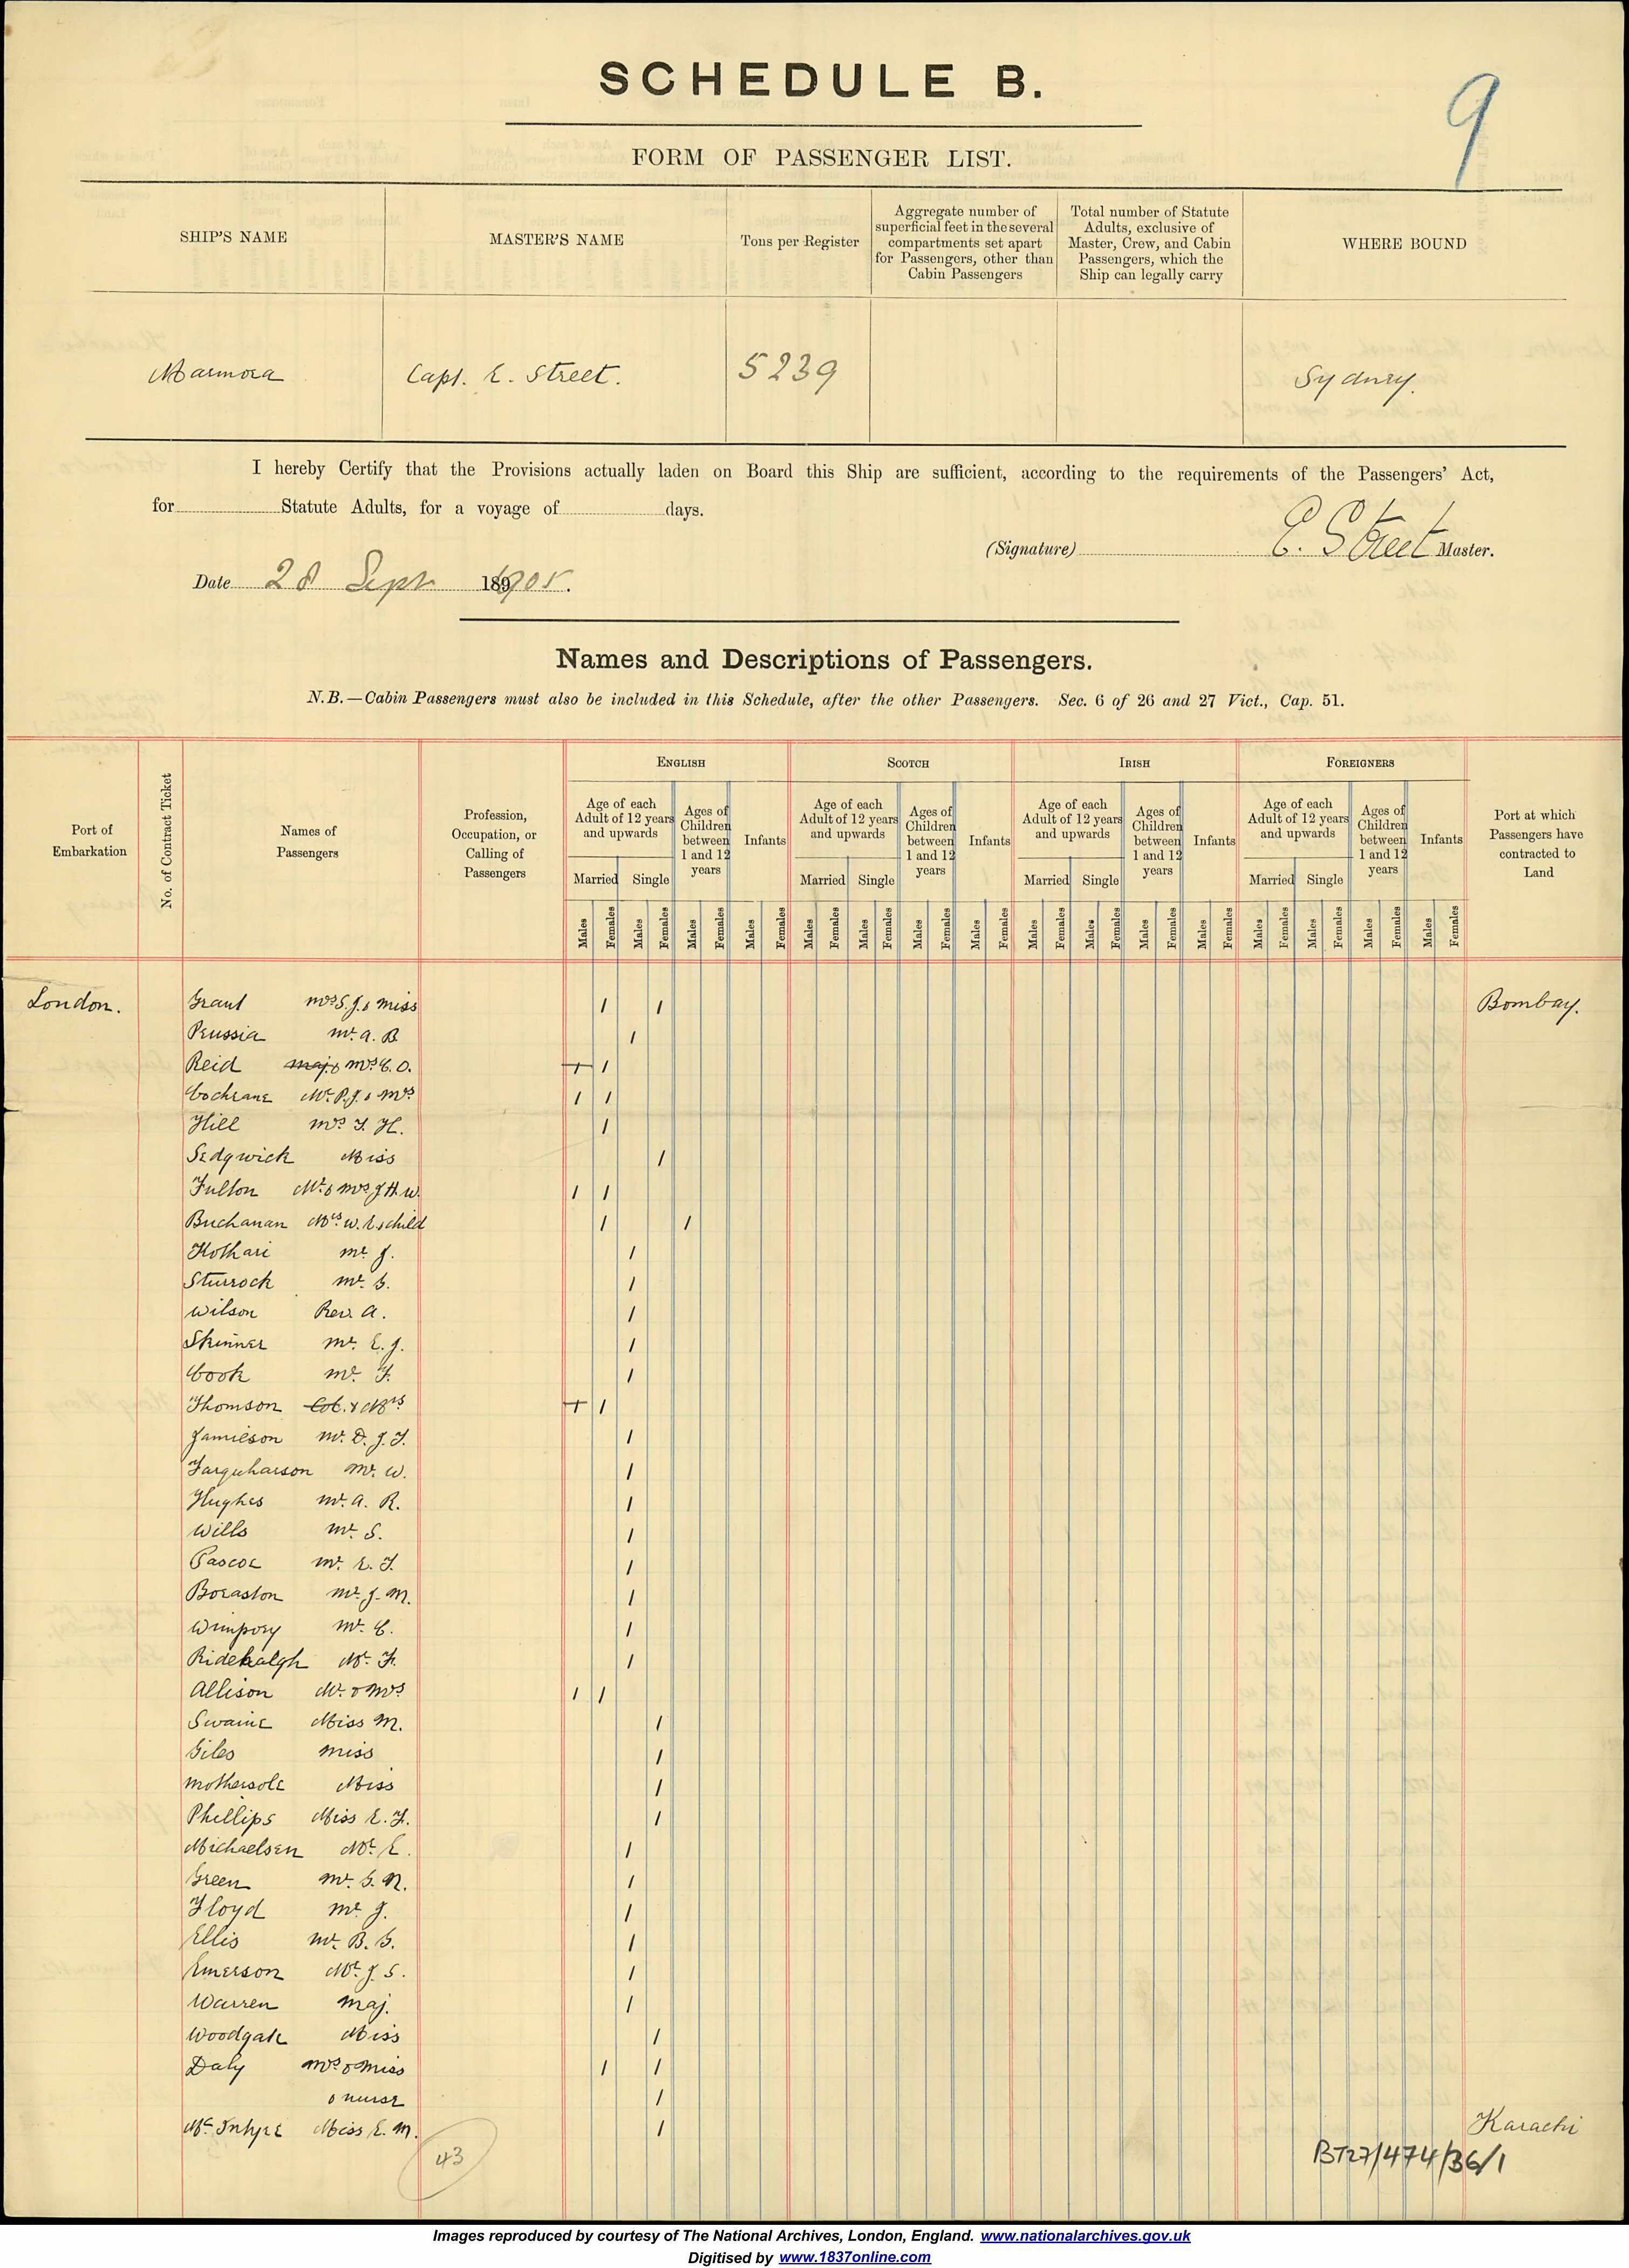 SCHEDULE B.
9
FORM OF PASSENGER LIST.
SHIP'S NAME
MASTER'S NAME
Tons per Register
Aggregate number of superficial feet in the several compartments set apart for Passengers, other than Cabin Passengers
Total number of Statute Adults, exclusive of Master, Crew, and Cabin Passengers, which the Ship can legally carry
WHERE BOUND
Marmora Capt. E. Street. 5239 Sydney.
I hereby Certify that the Provisions actually laden on Board this Ship are sufficient, according to the requirements of the Passengers' Act,
for Statute Adults, for a voyage of days.
(Signature) E. Street Master.
Date 28 Sept 1905.
Names and Descriptions of Passengers.
N.B.—Cabin Passengers must also be included in this Schedule, after the other Passengers. Sec. 6 of 26 and 27 Vict., Cap. 51.
Port of Embarkation
No. of Contract Ticket
Names of Passengers
Profession, Occupation, or Calling of Passengers
ENGLISH
SCOTCH
IRISH
FOREIGNERS
Port at which Passengers have contracted to Land
Age of each Adult of 12 years and upwards Ages of Children between 1 and 12 years Infants
Age of each Adult of 12 years and upwards Ages of Children between 1 and 12 years Infants
Age of each Adult of 12 years and upwards Ages of Children between 1 and 12 years Infants
Age of each Adult of 12 years and upwards Ages of Children between 1 and 12 years Infants
Married Single Married Single Married Single Married Single
Males Females Males Females Males Females Males Females Males Females Males Females Males Females Males Females Males Females Males Females Males Females Males Females Males Females Males Females Males Females Males Females
London. Grant Mrs S. J. & Miss 1 1 Bombay.
Prussia Mr. A. B 1
Reid Maj. & Mrs C. O. 1 1
Cochrane Mr. P. J. & Mrs 1 1
Hill Mrs T. H. 1
Sedgwick Miss 1
Fulton Mr. & Mrs J. H. W. 1 1
Buchanan Mrs. W. E & child 1 1
Kothari Mr J. 1
Sturrock Mr. G. 1
Wilson Rev. A. 1
Skinner Mr. E. J. 1
Cook Mr. F. 1
Thomson Col. & Mrs 1 1
Jamieson Mr. D. J. T. 1
Farquharson Mr. W. 1
Hughes Mr. A. R. 1
Wills Mr. S. 1
Pascoe Mr. E. T. 1
Boraston Mr. J. M. 1
Wimpory Mr. C. 1
Ridehalgh Mr. F. 1
Allison Mr. & Mrs 1 1
Swaine Miss M. 1
Giles Miss 1
Mothersole Miss 1
Phillips Miss E. F. 1
Michaelsen Mr. E. 1
Green Mr. G. N. 1
Floyd Mr. J. 1
Ellis Mr. B. G. 1
Emerson Mr. J. S. 1
Warren Maj. 1
Woodgate Miss 1
Daly Mrs & Miss 1 1
& nurse 1
McIntyre Miss E. M. 1 Karachi
43
BT27/474/36/1
Images reproduced by courtesy of The National Archives, London, England. www.nationalarchives.gov.uk
Digitised by www.1837online.com